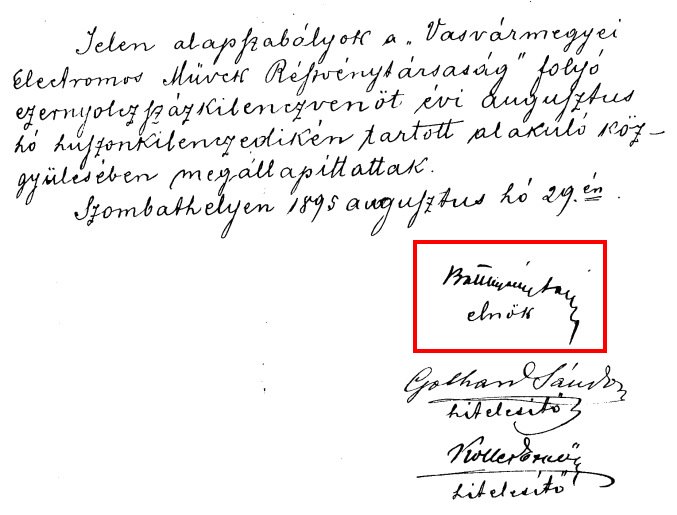 Jelen alapszabályok a „Vasvármegyei
Electromos Művek Résvénytársaság" folyó
ezernyolczszázkilenczvenöt évi augusztus
hó huszonkilenczedikén tartott alakuló köz-
gyülésében megállapíttattak.
Szombathelyen 1895 augusztus hó 29.én.
Batthyány Lajos
elnök
Gothard Sándor
hitelesítő
Koller Ernő
hitelesítő